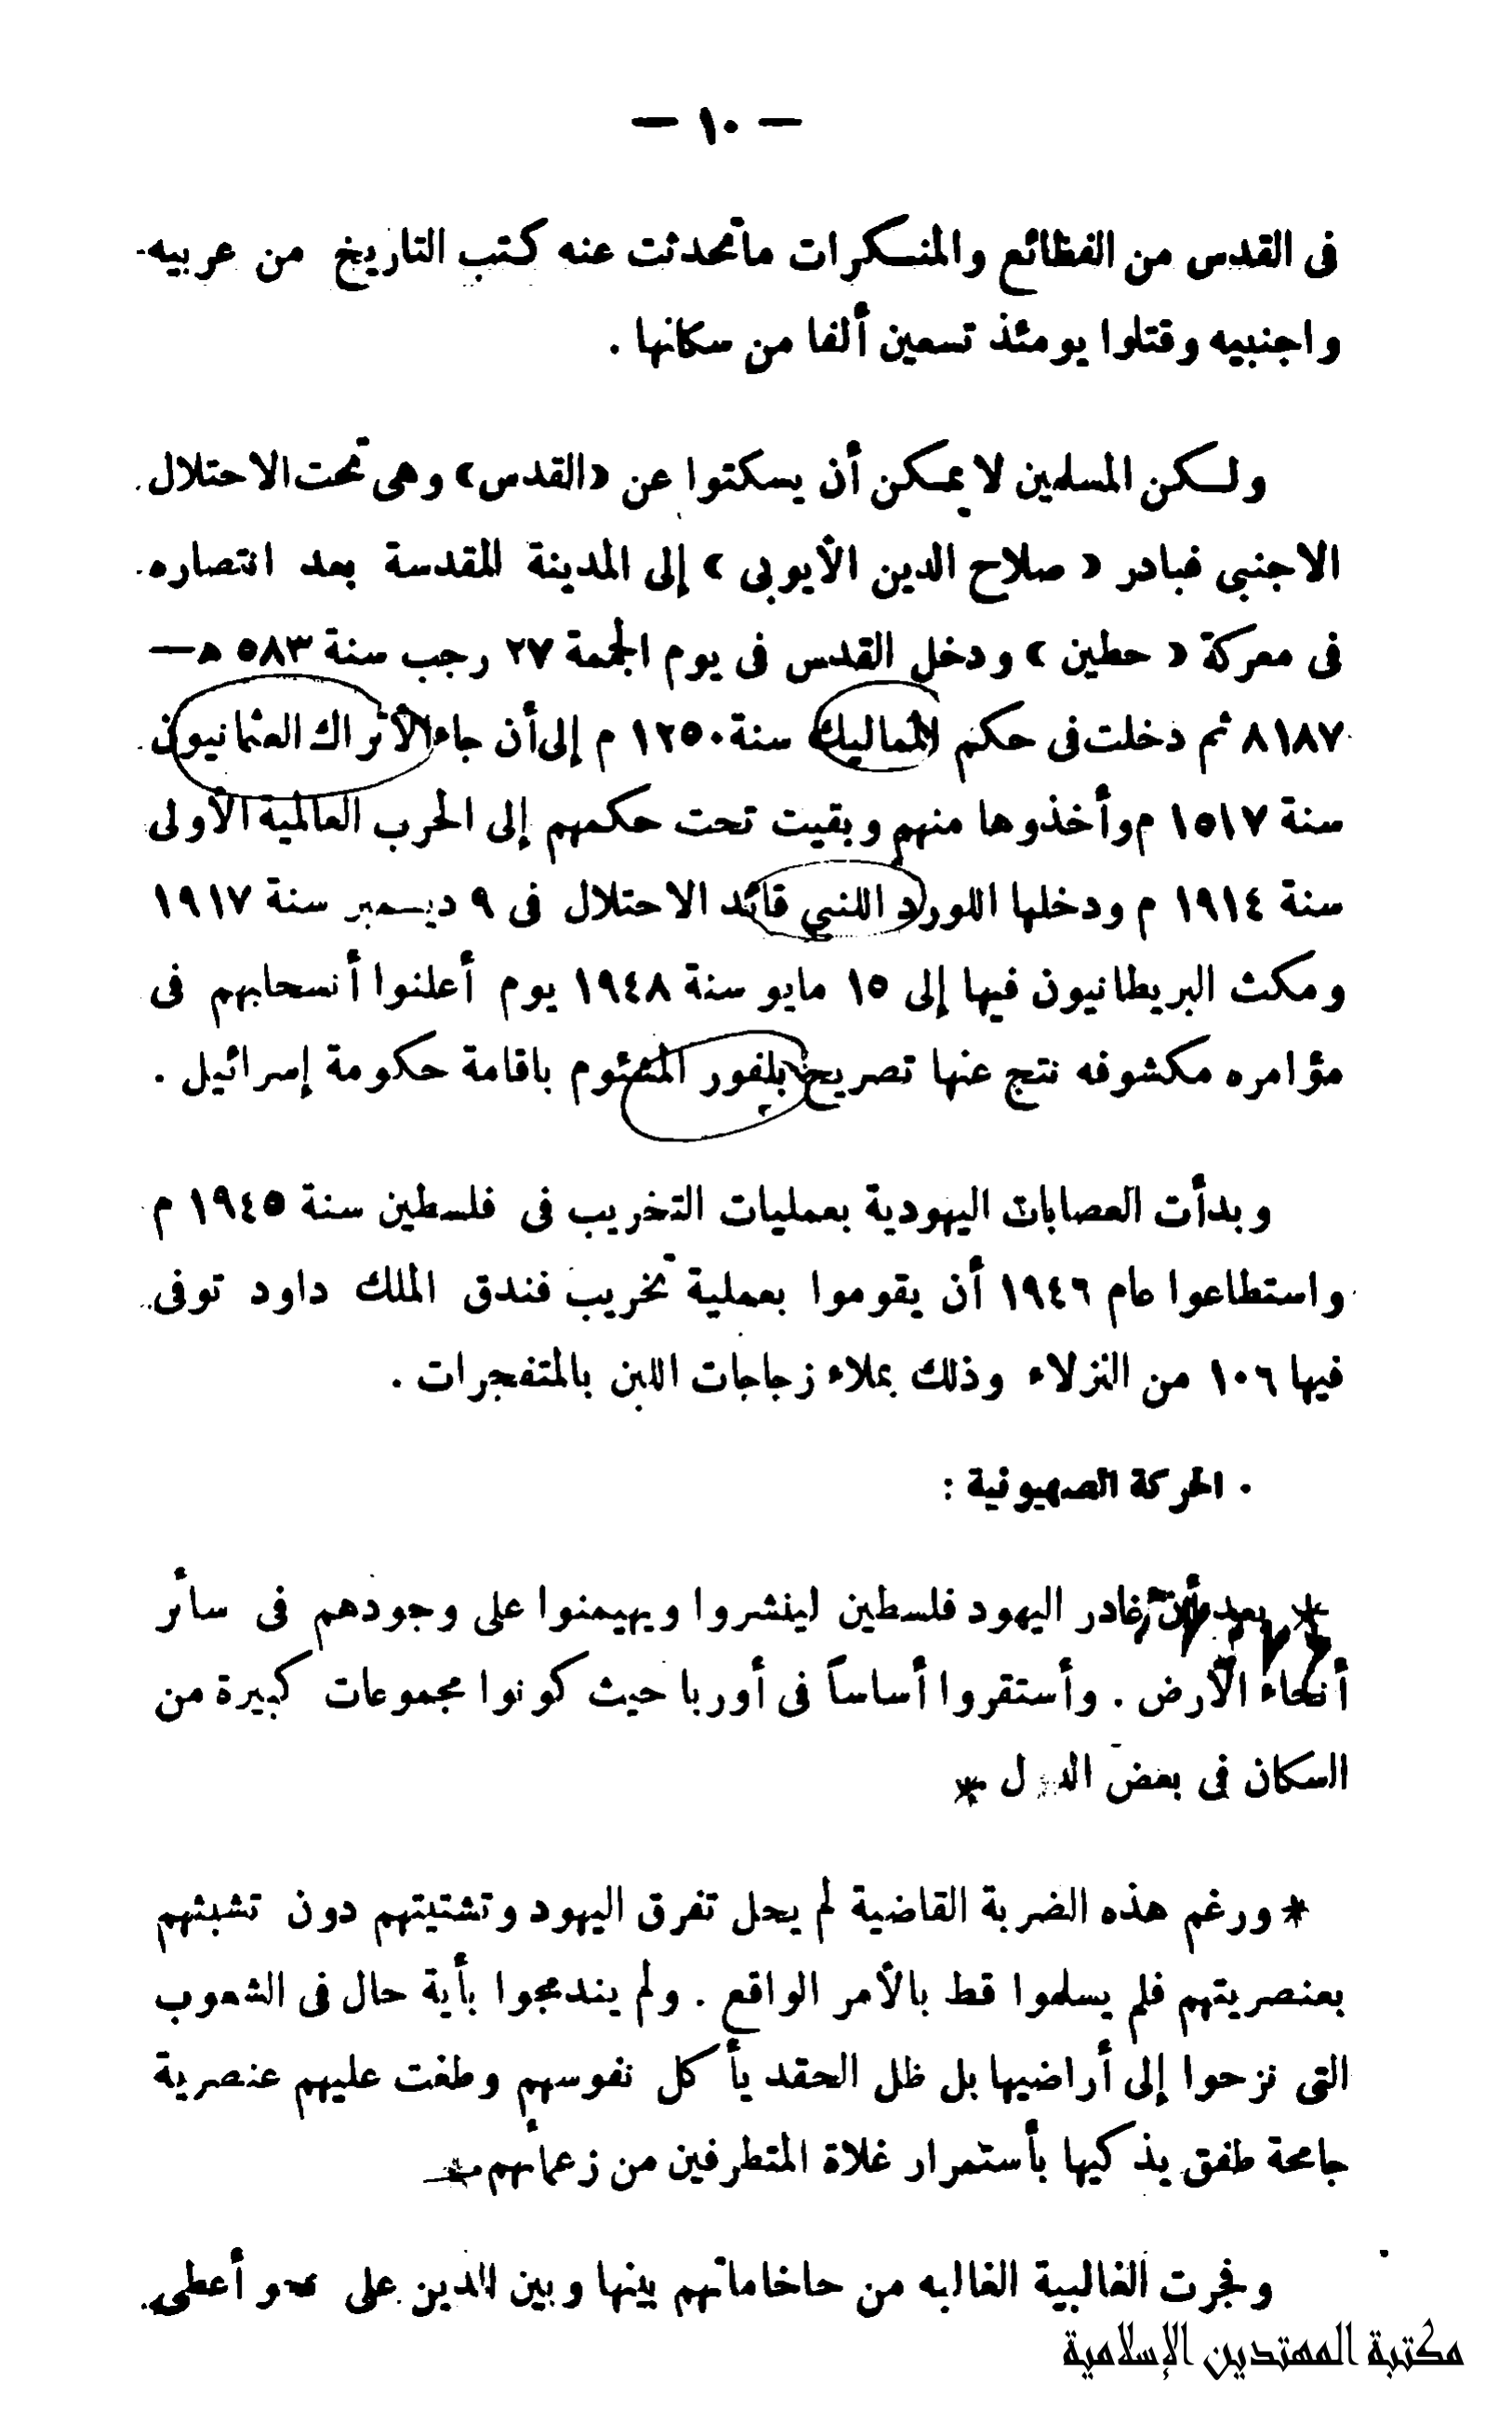 — ١٠ —
فى القدس من الفظائع والمنكرات ماتحدثت عنه كتب التاريخ من عربيه
واجنبيه وقتلوا يومئذ تسعين ألفا من سكانها .
ولكن المسلمين لا يمكن أن يسكتوا عن «القدس» وهى تحت الاحتلال
الاجنبى فبادر « صلاح الدين الأيوبى » إلى المدينة المقدسة بعد انتصاره
فى معركة « حطين » ودخل القدس فى يوم الجمعة ٢٧ رجب سنة ٥٨٣ هـ —
٨١٨٧ ثم دخلت فى حكم المماليك سنة ١٢٥٠ م إلى أن جاء الأتراك العثمانيون
سنة ١٥١٧ م وأخذوها منهم وبقيت تحت حكمهم إلى الحرب العالمية الأولى
سنة ١٩١٤ م ودخلها اللورد اللنبي قائد الاحتلال فى ٩ ديسمبر سنة ١٩١٧
ومكث البريطانيون فيها إلى ١٥ مايو سنة ١٩٤٨ يوم أعلنوا أنسحابهم فى
مؤامره مكشوفه نتج عنها تصريح بلفور المشئوم باقامة حكومة إسرائيل .
وبدأت العصابات اليهودية بعمليات التخريب فى فلسطين سنة ١٩٤٥ م
واستطاعوا عام ١٩٤٦ أن يقوموا بعملية تخريب فندق الملك داود توفى
فيها ١٠٦ من النزلاء وذلك بملاء زجاجات اللبن بالمتفجرات .
. الحركة الصهيونية :
* بعد أن غادر اليهود فلسطين لينشروا ويهيمنوا على وجودهم فى سائر
أنحاء الأرض . وأستقروا أساساً فى أوربا حيث كونوا مجموعات كبيرة من
السكان فى بعض *
* ورغم هذه الضربة القاضية لم يحل تفرق اليهود وتشتيتهم دون تشبثهم
بعنصريتهم فلم يسلموا قط بالأمر الواقع . ولم يندمجوا بأية حال فى الشعوب
التى نزحوا إلى أراضيها بل ظل الحقد يأكل نفوسهم وطغت عليهم عنصرية
جامحة طفق يذكيها بأستمرار غلاة المتطرفين من زعمائهم *
وفجرت الغالبية الغالبه من حاخاماتهم بينها وبين الدين على نحو أعطى
مكتبة المهتدين الإسلامية